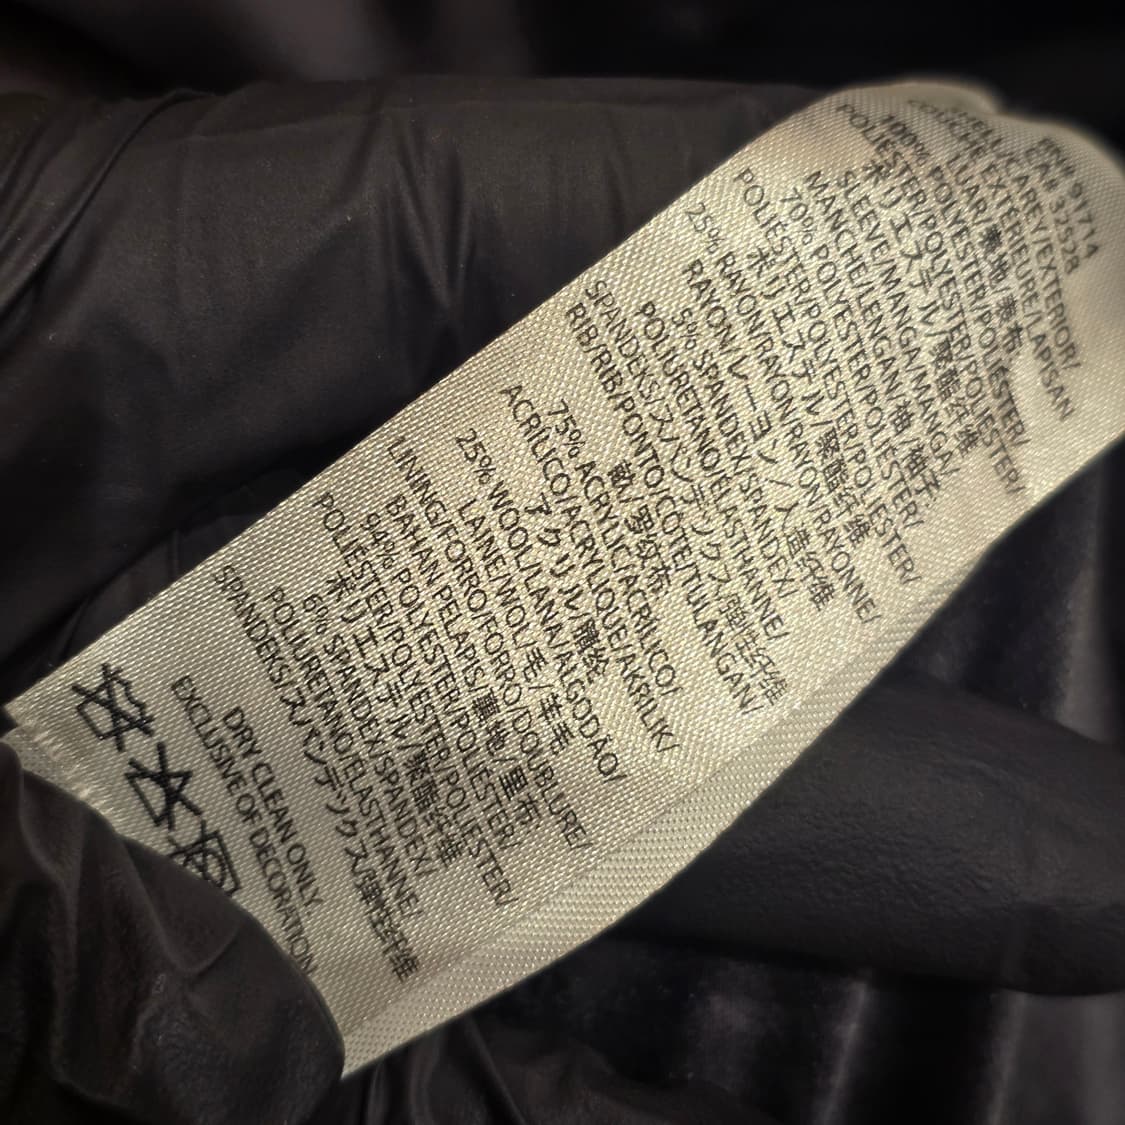 RN# 91714
CA# 37528
CAREY/EXTERIOR/
EXTERIEURE/LAPISAN
LUAR/表地/表布
100% POLYESTER/POLIÉSTER/
POLIESTER/POLYESTER/POLIESTER/
ポリエステル/聚酯纤维
SLEEVE/MANGA/MANGA/
MANCHE/LENGAN/袖/袖子
70% POLYESTER/POLIÉSTER/
POLIESTER/POLYESTER/POLIESTER/
ポリエステル/聚酯纤维
25% RAYON/RAYON/RAYONNE/
RAYON/レーヨン/人造纤维
5% SPANDEX/SPANDEX/
POLIURETANO/ELASTHANNE/
SPANDEKS/スパンデックス/弹性纤维
RIB/RIB/PONTO/COTE/TULANGAN/
畝/罗纹布
75% ACRYLIC/ACRILICO/
ACRILICO/ACRYLIQUE/AKRILIK/
アクリル/腈纶
25% WOOL/LANA/ALGODÃO/
LAINE/WOL/毛/羊毛
LINING/FORRO/FORRO/DOUBLURE/
BAHAN PELAPIS/裏地/里布
94% POLYESTER/POLIÉSTER
POLIESTER/POLYESTER/POLIESTER/
ポリエステル/聚酯纤维
6% SPANDEX/SPANDEX/
POLIURETANO/ELASTHANNE/
SPANDEKS/スパンデックス/弹性纤维
DRY CLEAN ONLY
EXCLUSIVE OF DECORATION